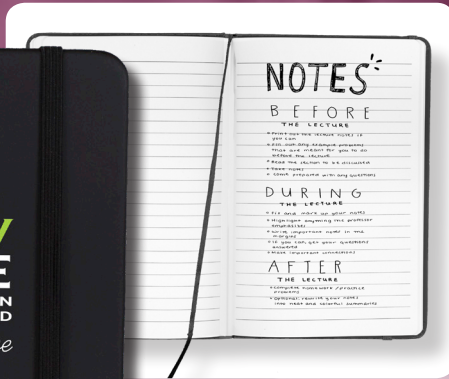 NOTES
BEFORE
THE LECTURE
• Print out the lecture notes if
you can
• Fill out any example problems
that are meant for you to do
before the lecture
• Read the section to be discussed
• Take notes
• Come prepared with any questions
DURING
THE LECTURE
• Fix and mark up your notes
• Highlight anything the professor
emphasizes
• Write important notes in the
margins
• If you can, get your questions
answered
• Make important connections
AFTER
THE LECTURE
• Complete homework / practice
problems
• Optional: rewrite your notes
into neat and colorful summaries